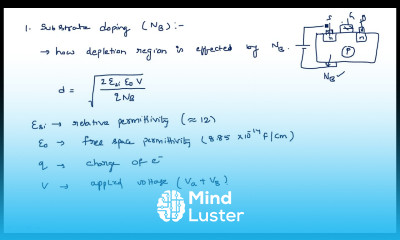 1. Substrate doping (NB) :-
→ how depletion region is effected by NB.
S G D
P
NB ✓
d = √(2 εsi ε0 V / q NB)
εsi → relative permittivity (≈ 12)
ε0 → free space permittivity (8.85 × 10^-14 F/cm)
q → charge of e-
V → applied voltage (Va + VB)
Mind
Luster